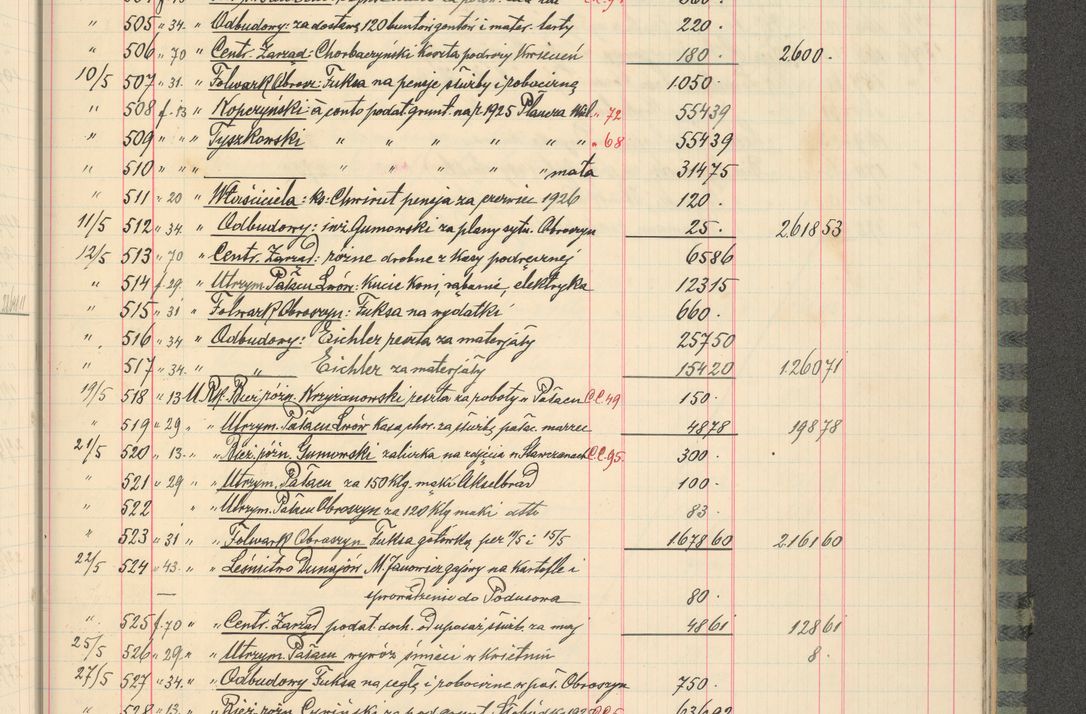 " 505 " 34. " Odbudowy: za dostawę 120 buntów gontów i mater. łarty 220 .
" 506 " 70 " Centr. Zarząd: Chorbaczyński Koszta podróży Kwiecień 180 . 2600 .
10/5 507 " 31. " Folwark Obrosz: Fuksa na pensje służby i robociznę 1.050 .
" 508 f. 13 " Kopczyński: à conto podat. grunt. na p. 1925 " 72 55439
" 509 " " " Tyszkowski " " " " " " " 68 55439
" 510 " " " " " " " " mata 31475
" 511 " 20 " Właściciela: ks. Chwirut pensja za czerwiec 1926 120 .
11/5 512 " 34. " Odbudowy: inż. Gumowski za plany sytu. Obroszyn 25 . 261853
12/5 513 " 70 " Centr. Zarząd: różne drobne z Kasy podręcznej 6586
" 514 f. 29. " Utrzym. Pałacu Lwów: Kucie Koni, rąbanie, elektryka 12315
" 515 " 31 " Folwark Obroszyn: Fuksa na wydatki 660 .
" 516 " 34 " Odbudowy: Eichler reszta za materjały 25750
" 517 " 34. " " Eichler za materjały 15420 126071
19/5 518 " 13 Krzyżanowski reszta za roboty w Pałacu C.C.49 150 .
" 519 " 29 " Utrzym. Pałacu Lwów Kasa chor. za służbę pałac. marzec 4878 19878
21/5 520 " 13. " Bież. różn. Gumowski zaliczka na zdjęcia w C.C.95. 300 .
" 521 " 29 " Utrzym. Pałacu za 150 klg. mąki Akselbrad 100 .
" 522 " Utrzym. Pałacu Obroszyn za 120 klg mąki 83 .
" 523 " 31 " Folwark Obroszyn Fuksa gotówką per 11/5 i 15/5 167860 216160
22/5 524 " 43. " Leśnictwo Dunajów M. Janowicz gajowy na Kartofle i
sprowadzenie do Podusowa 80 .
" 525 f. 70 " Centr. Zarząd podat. doch. od uposaż. służb. za maj 4861 12861
25/5 526 " 29 " Utrzym. Pałacu wywóz śmieci w Kwietniu 8 .
27/5 527 " 34. " Odbudowy Fuksa na cegłę i robociznę w pał. Obroszyn 750 .
528 " 13. " Bież. różn.